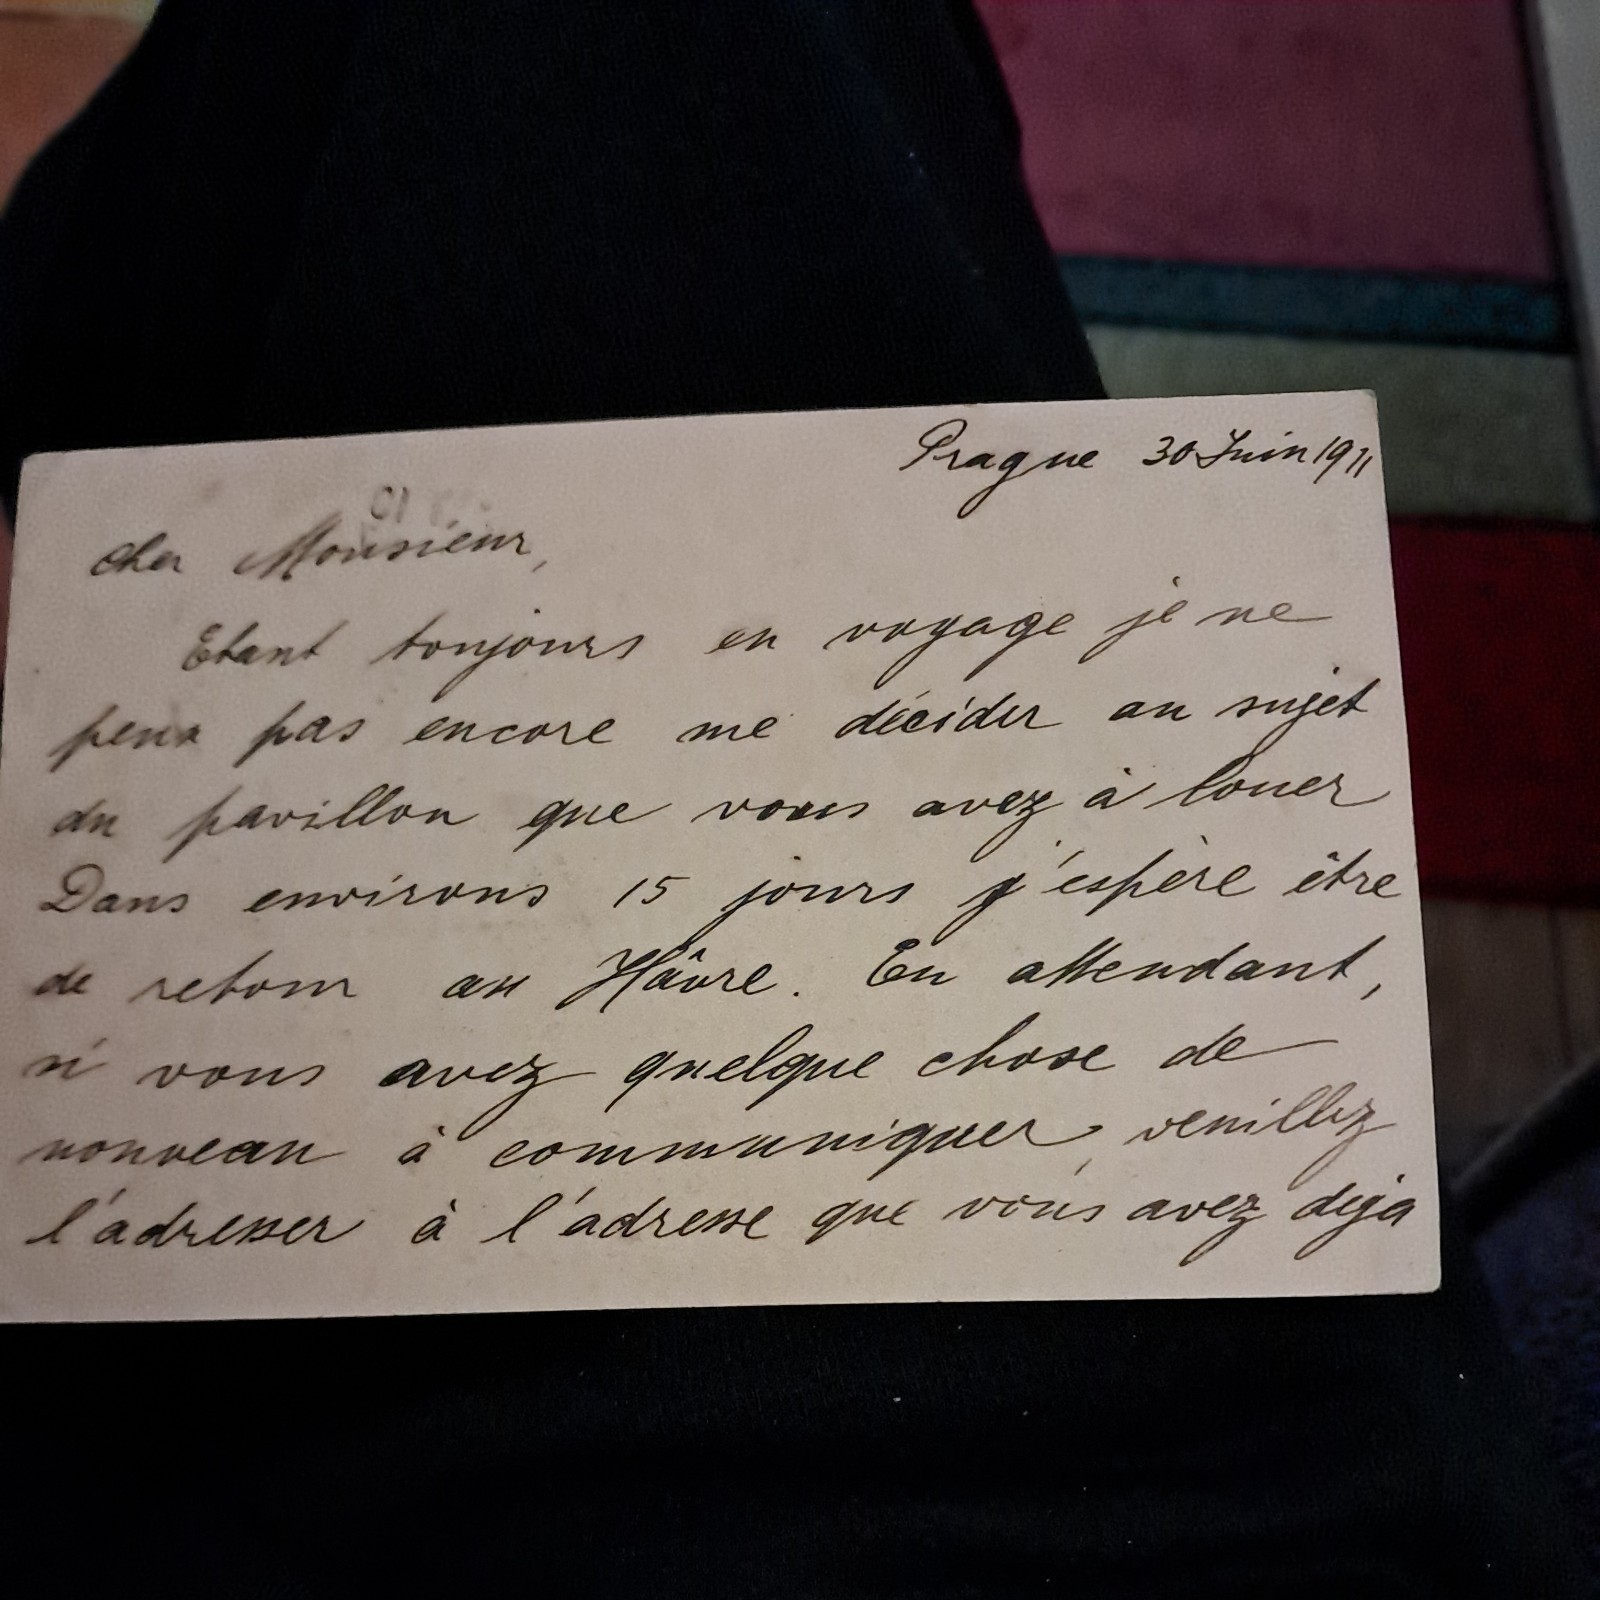 Prague 30 Juin 1911
cher Monsieur,
Etant toujours en voyage je ne
peux pas encore me décider au sujet
du pavillon que vous avez à louer
Dans environs 15 jours j'espère être
de retour au Hâvre. En attendant,
si vous avez quelque chose de
nouveau à communiquer, veuillez
l'adresser à l'adresse que vous avez déja